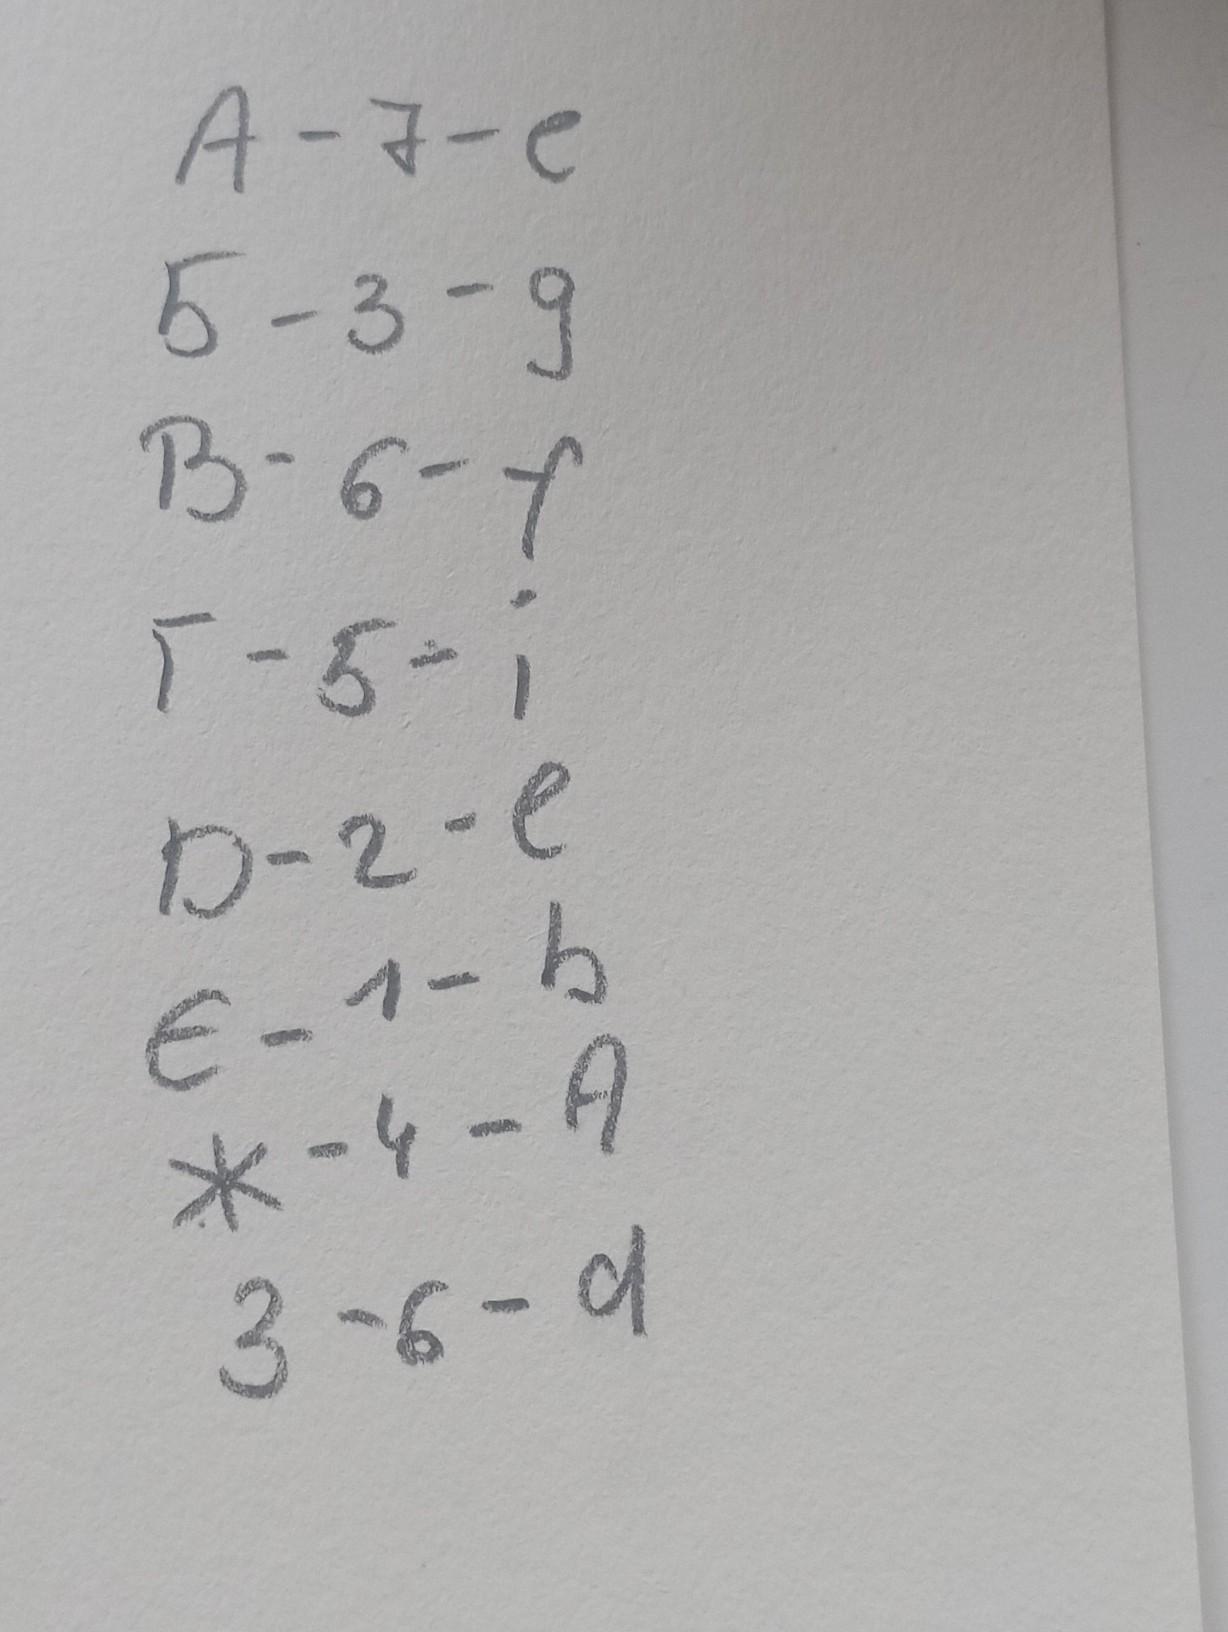 А - 7 - e
Б - 3 - g
В - 6 - f
Г - 5 - i
D - 2 - e
Е - 1 - b
Ж - 4 - A
З - 6 - d